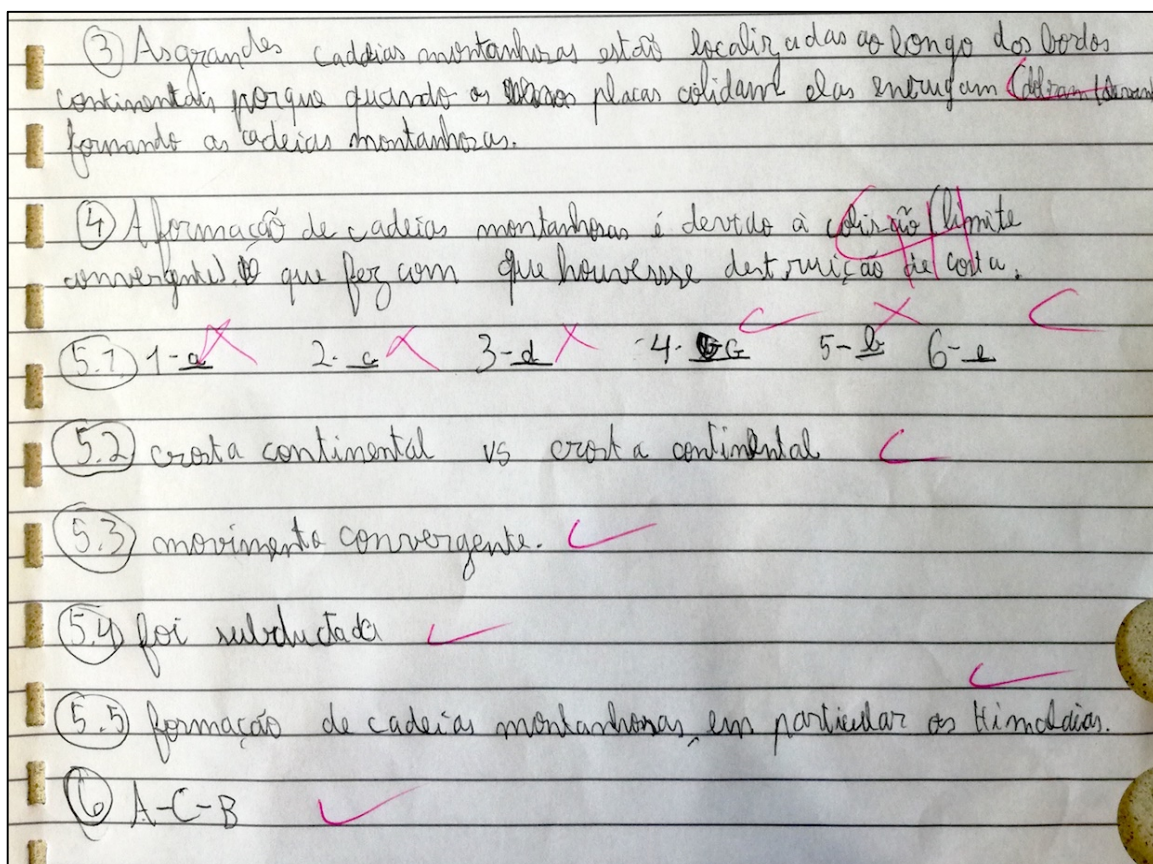 ③ As grandes cadeias montanhosas estão localizadas ao longo dos bordos
continentais porque quando as placas colidam elas enrugam
formando as cadeias montanhozas.
④ A formação de cadeias montanhosas é devido à colisão (limite
convergente). O que fez com que houvessse destruição de costa.
5.1 1-a 2-c 3-d 4-G 5-b 6-e
5.2 crosta continental vs crosta continental
5.3 movimento convergente.
5.4 foi subductada
5.5 formação de cadeias montanhosas, em particular os Himalaias.
⑥ A-C-B